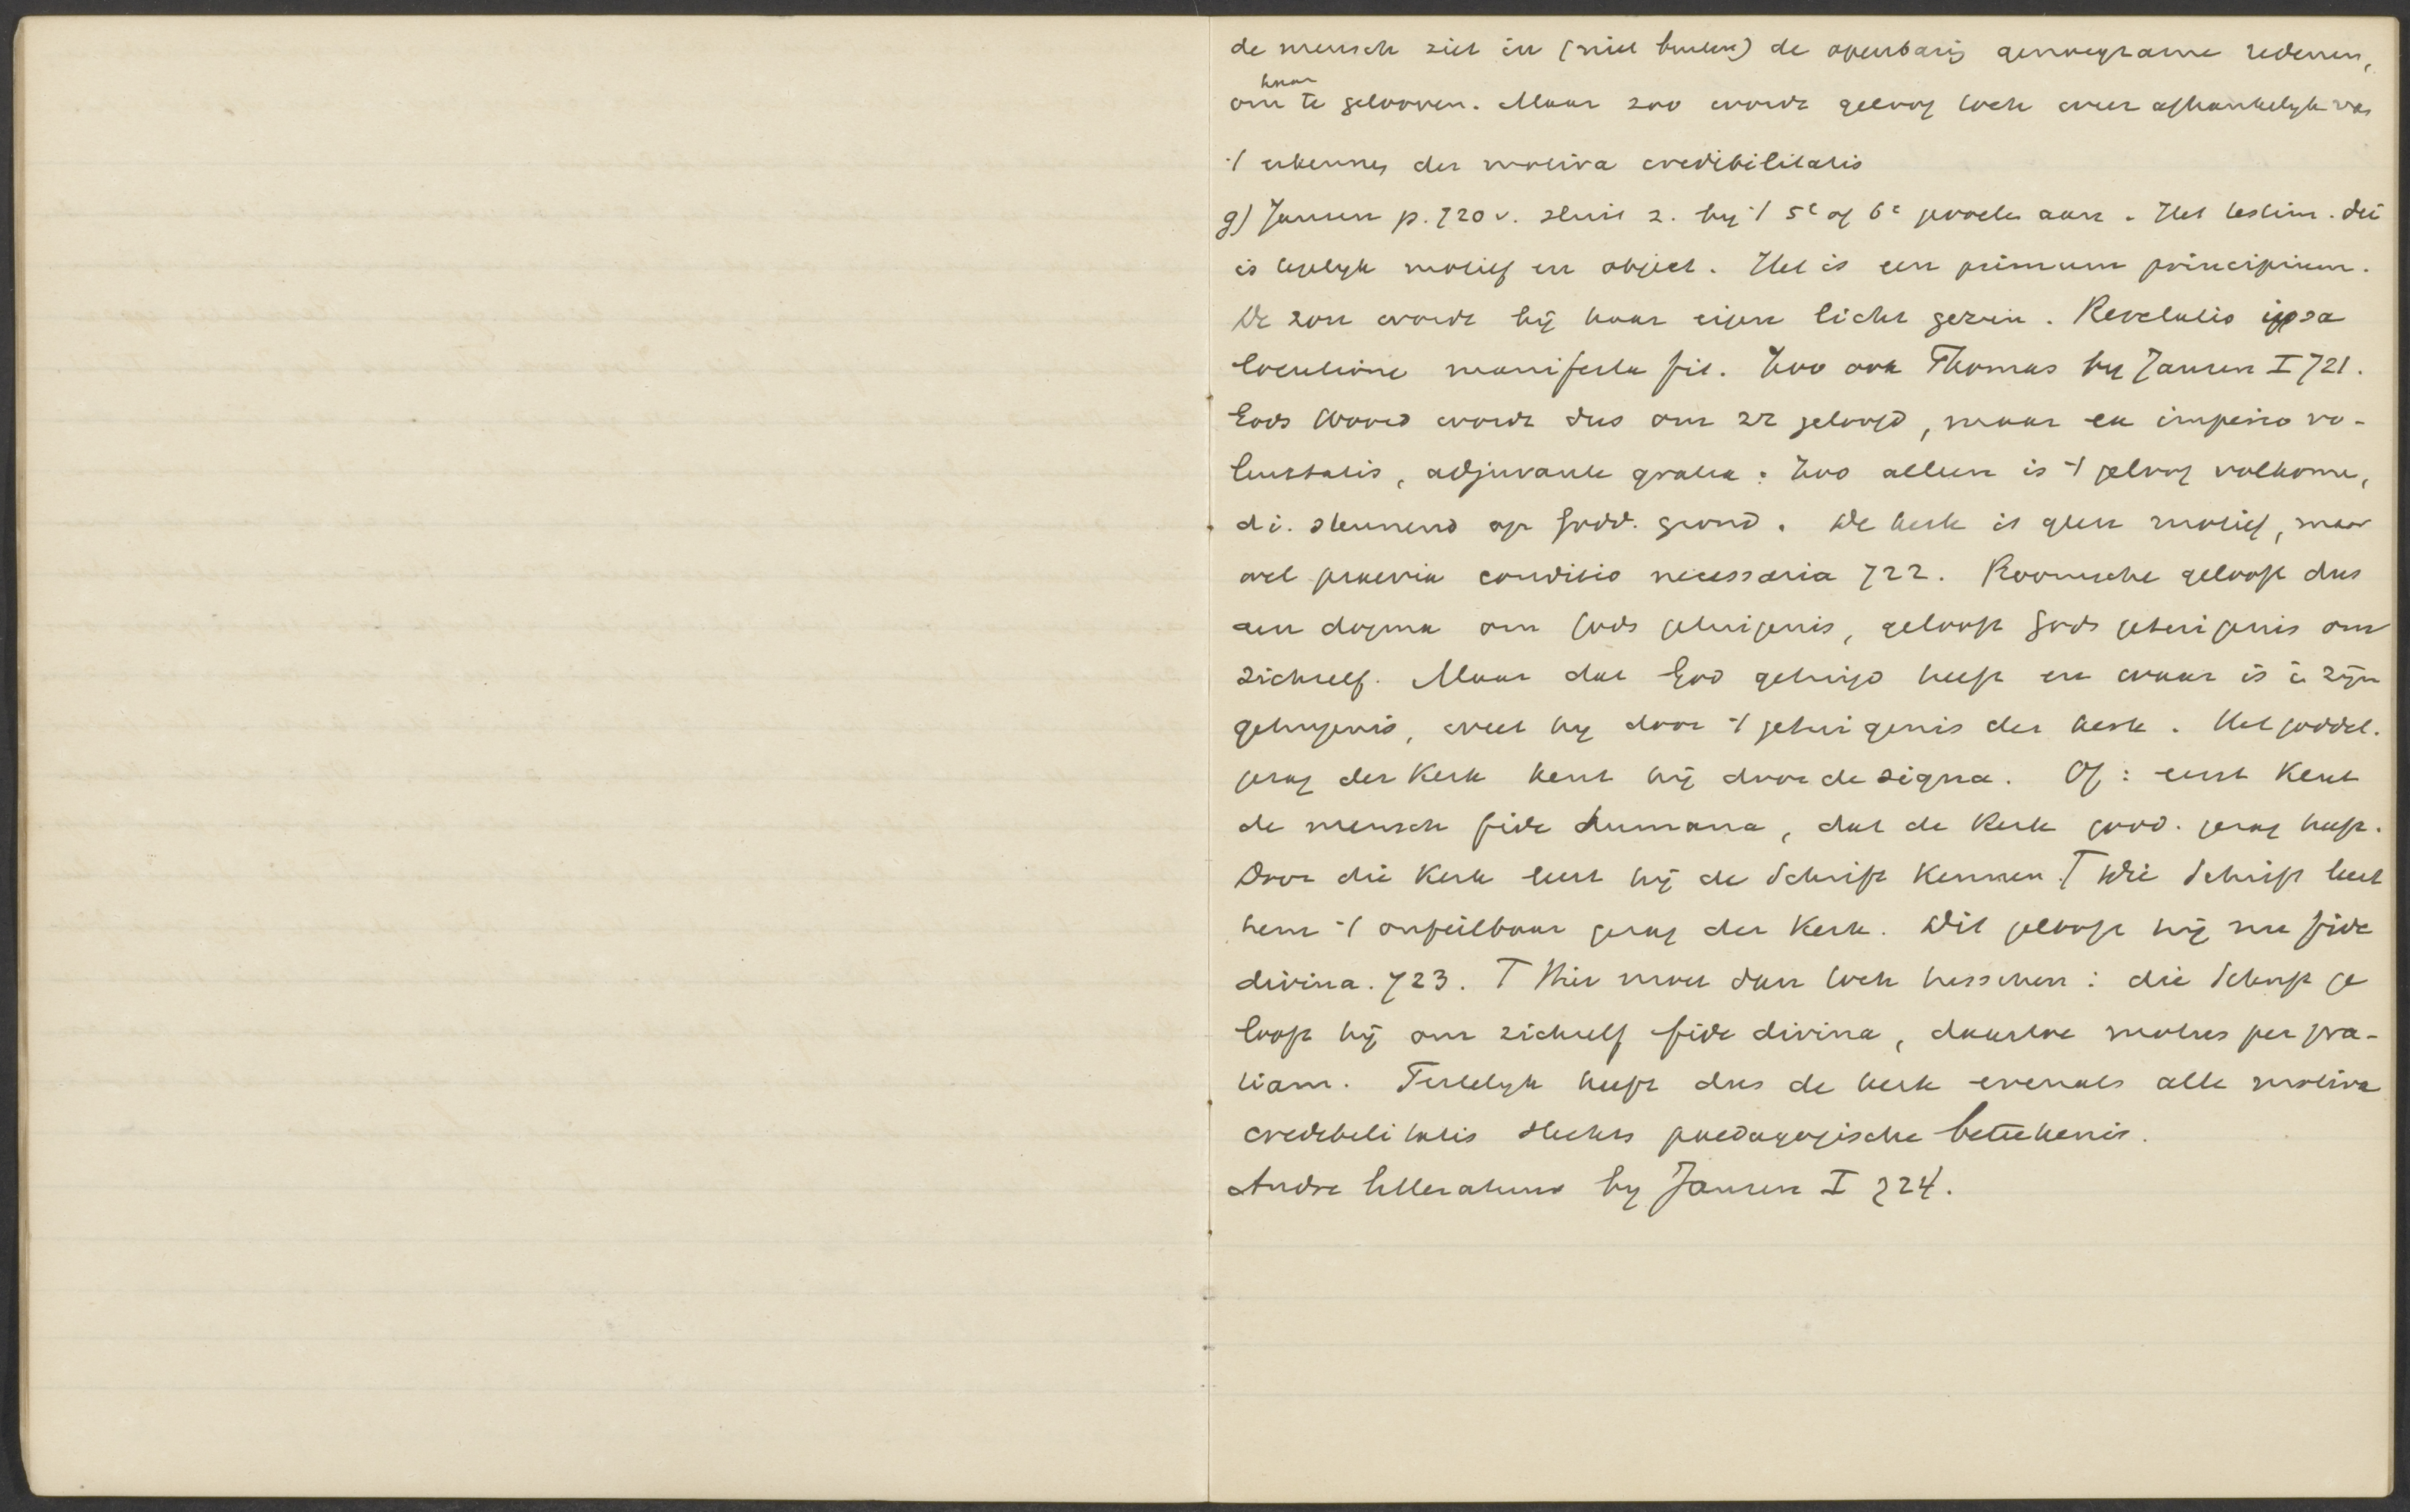 de mensch ziet in (niet buiten) de openbarig genoegzame redenen,
haar
om te gelooven. Maar zoo wordt geloof toch weer afhankelyk van
't erkennen der motiva credibilitatis
g) Jansen p. 720 v. sluit z. by 't 5e of 6e proeve aan. Het testim. dei
is tegelyk motief en object. Het is een primum principium.
De zon wordt bij haar eigen licht gezien. Revelatio ipsa
locutione manifesta fit. Zoo ook Thomas by Jansen I 721.
Gods Woord wordt dus om zz geloofd, maar ex imperio vo-
luntatis, adjuvante gratia: Zoo alleen is 't geloof volkome,
d i. steunend op godd. grond. De kerk is geen motief, maar
wel praevia conditio necessaria 722. Roomsche gelooft dus
een dogma om Gods getuigenis, gelooft Gods getuigenis om
zichzelf. Maar dat God getuigd heeft en waar is i. zijn
getuigenis, weet hy door 't getuigenis der kerk. Het goddel.
gezag der Kerk kent hij door de signa. Of: eerst Kent
de mensch fide humana, dat de Kerk godd. gezag heeft.
Door die Kerk leert hij de Schrift Kennen. T Die Schrift leert
hem 't onfeilbaar gezag der Kerk. Dit gelooft hij nu fide
divina. 723. T Hier moet dan toch tusschen: die Schrift ge
looft hij om zichzelf fide divina, daartoe motus per gra-
tiam. Feitelyk heeft dus de kerk evenals alle motiva
credibilitatis slechts paedagogische beteekenis.
Andre litteratuur by Jansen I 724.